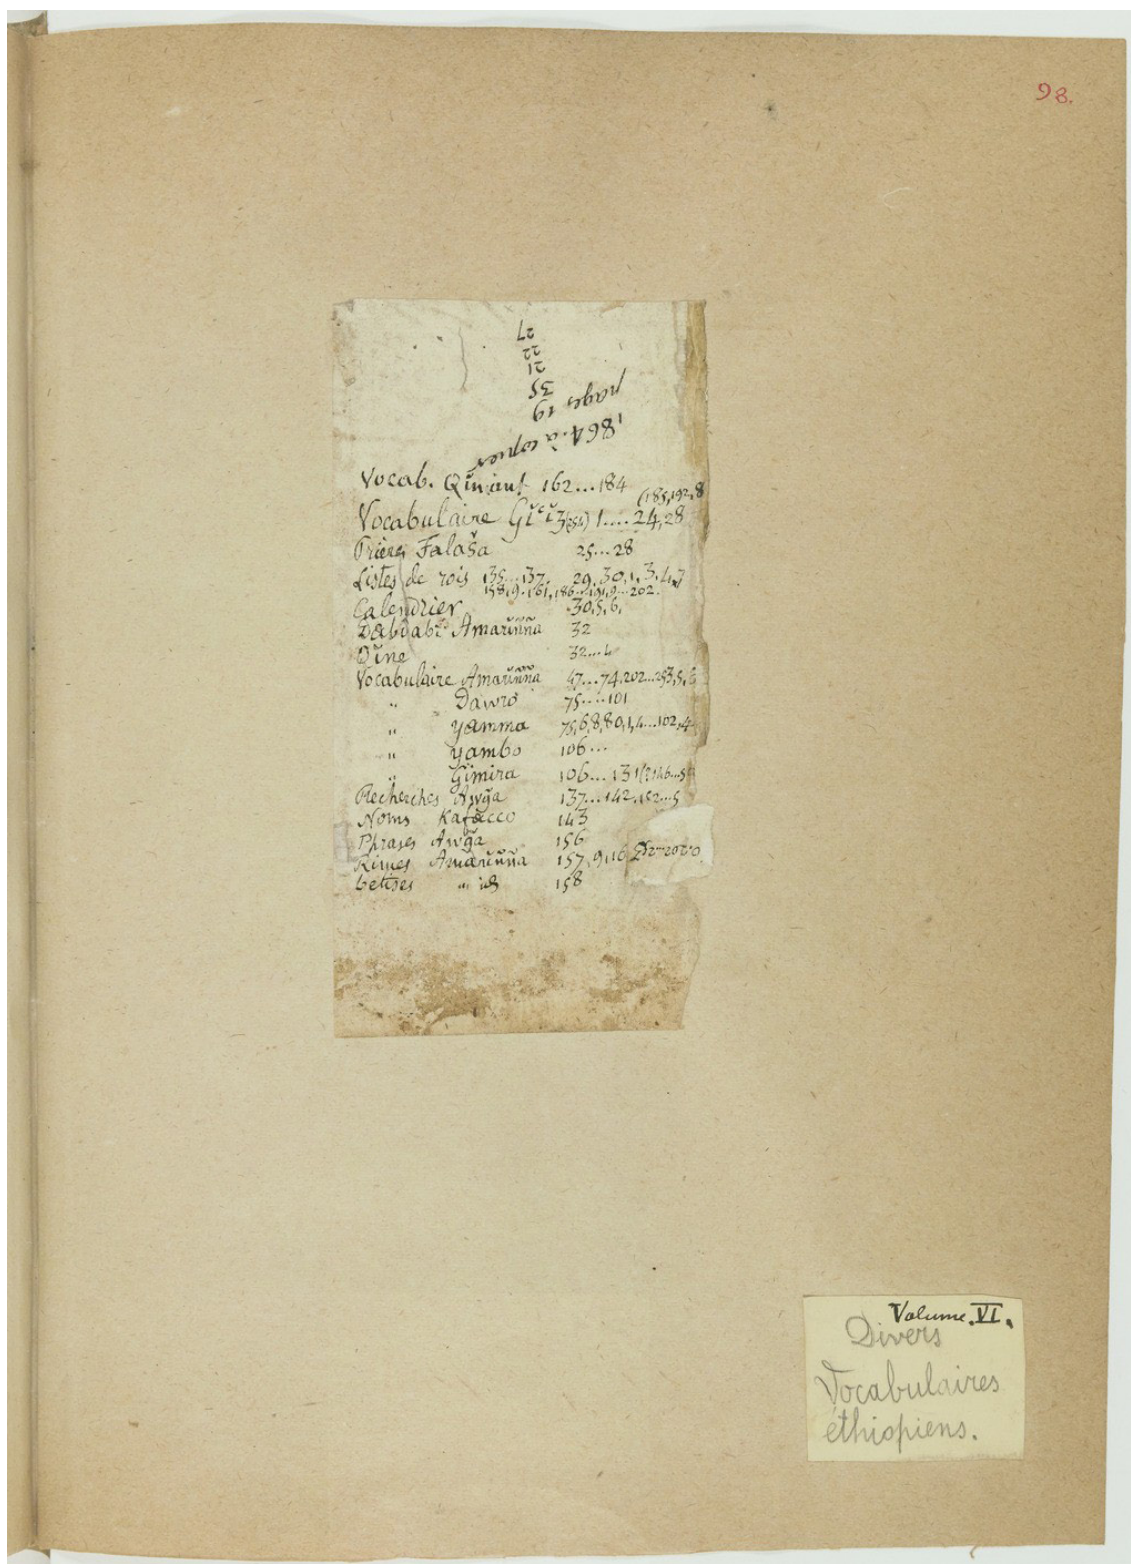 98.
27
22
21
35
pages 19
1864. à copier
Vocab. Qimant 162...184
(185,192,8
Vocabulaire Gi'iz (254) 1....24,28
Prières Falaša 25...28
Listes de rois 135...137. 29,30,1,3,4,7
158,9.161,186...191,9...202.
Calendrier 30,5,6,
Dabdabe Amarĭñña 32
Qĭne 32...4
Vocabulaire Amarĭñña 47...74,202...253,5,6
" Dawro 75....101
" Yamma 75,6,8,80,1,4...102,4
" Yambo 106...
" Gimira 106...131
Recherches Awğa 137...142,152...5
Noms Kafacco 143
Phrases Awğa 156
Rimes Amarĭñña 157,9,16
betises " id 158
Volume. VI.
Divers
Vocabulaires
éthiopiens.